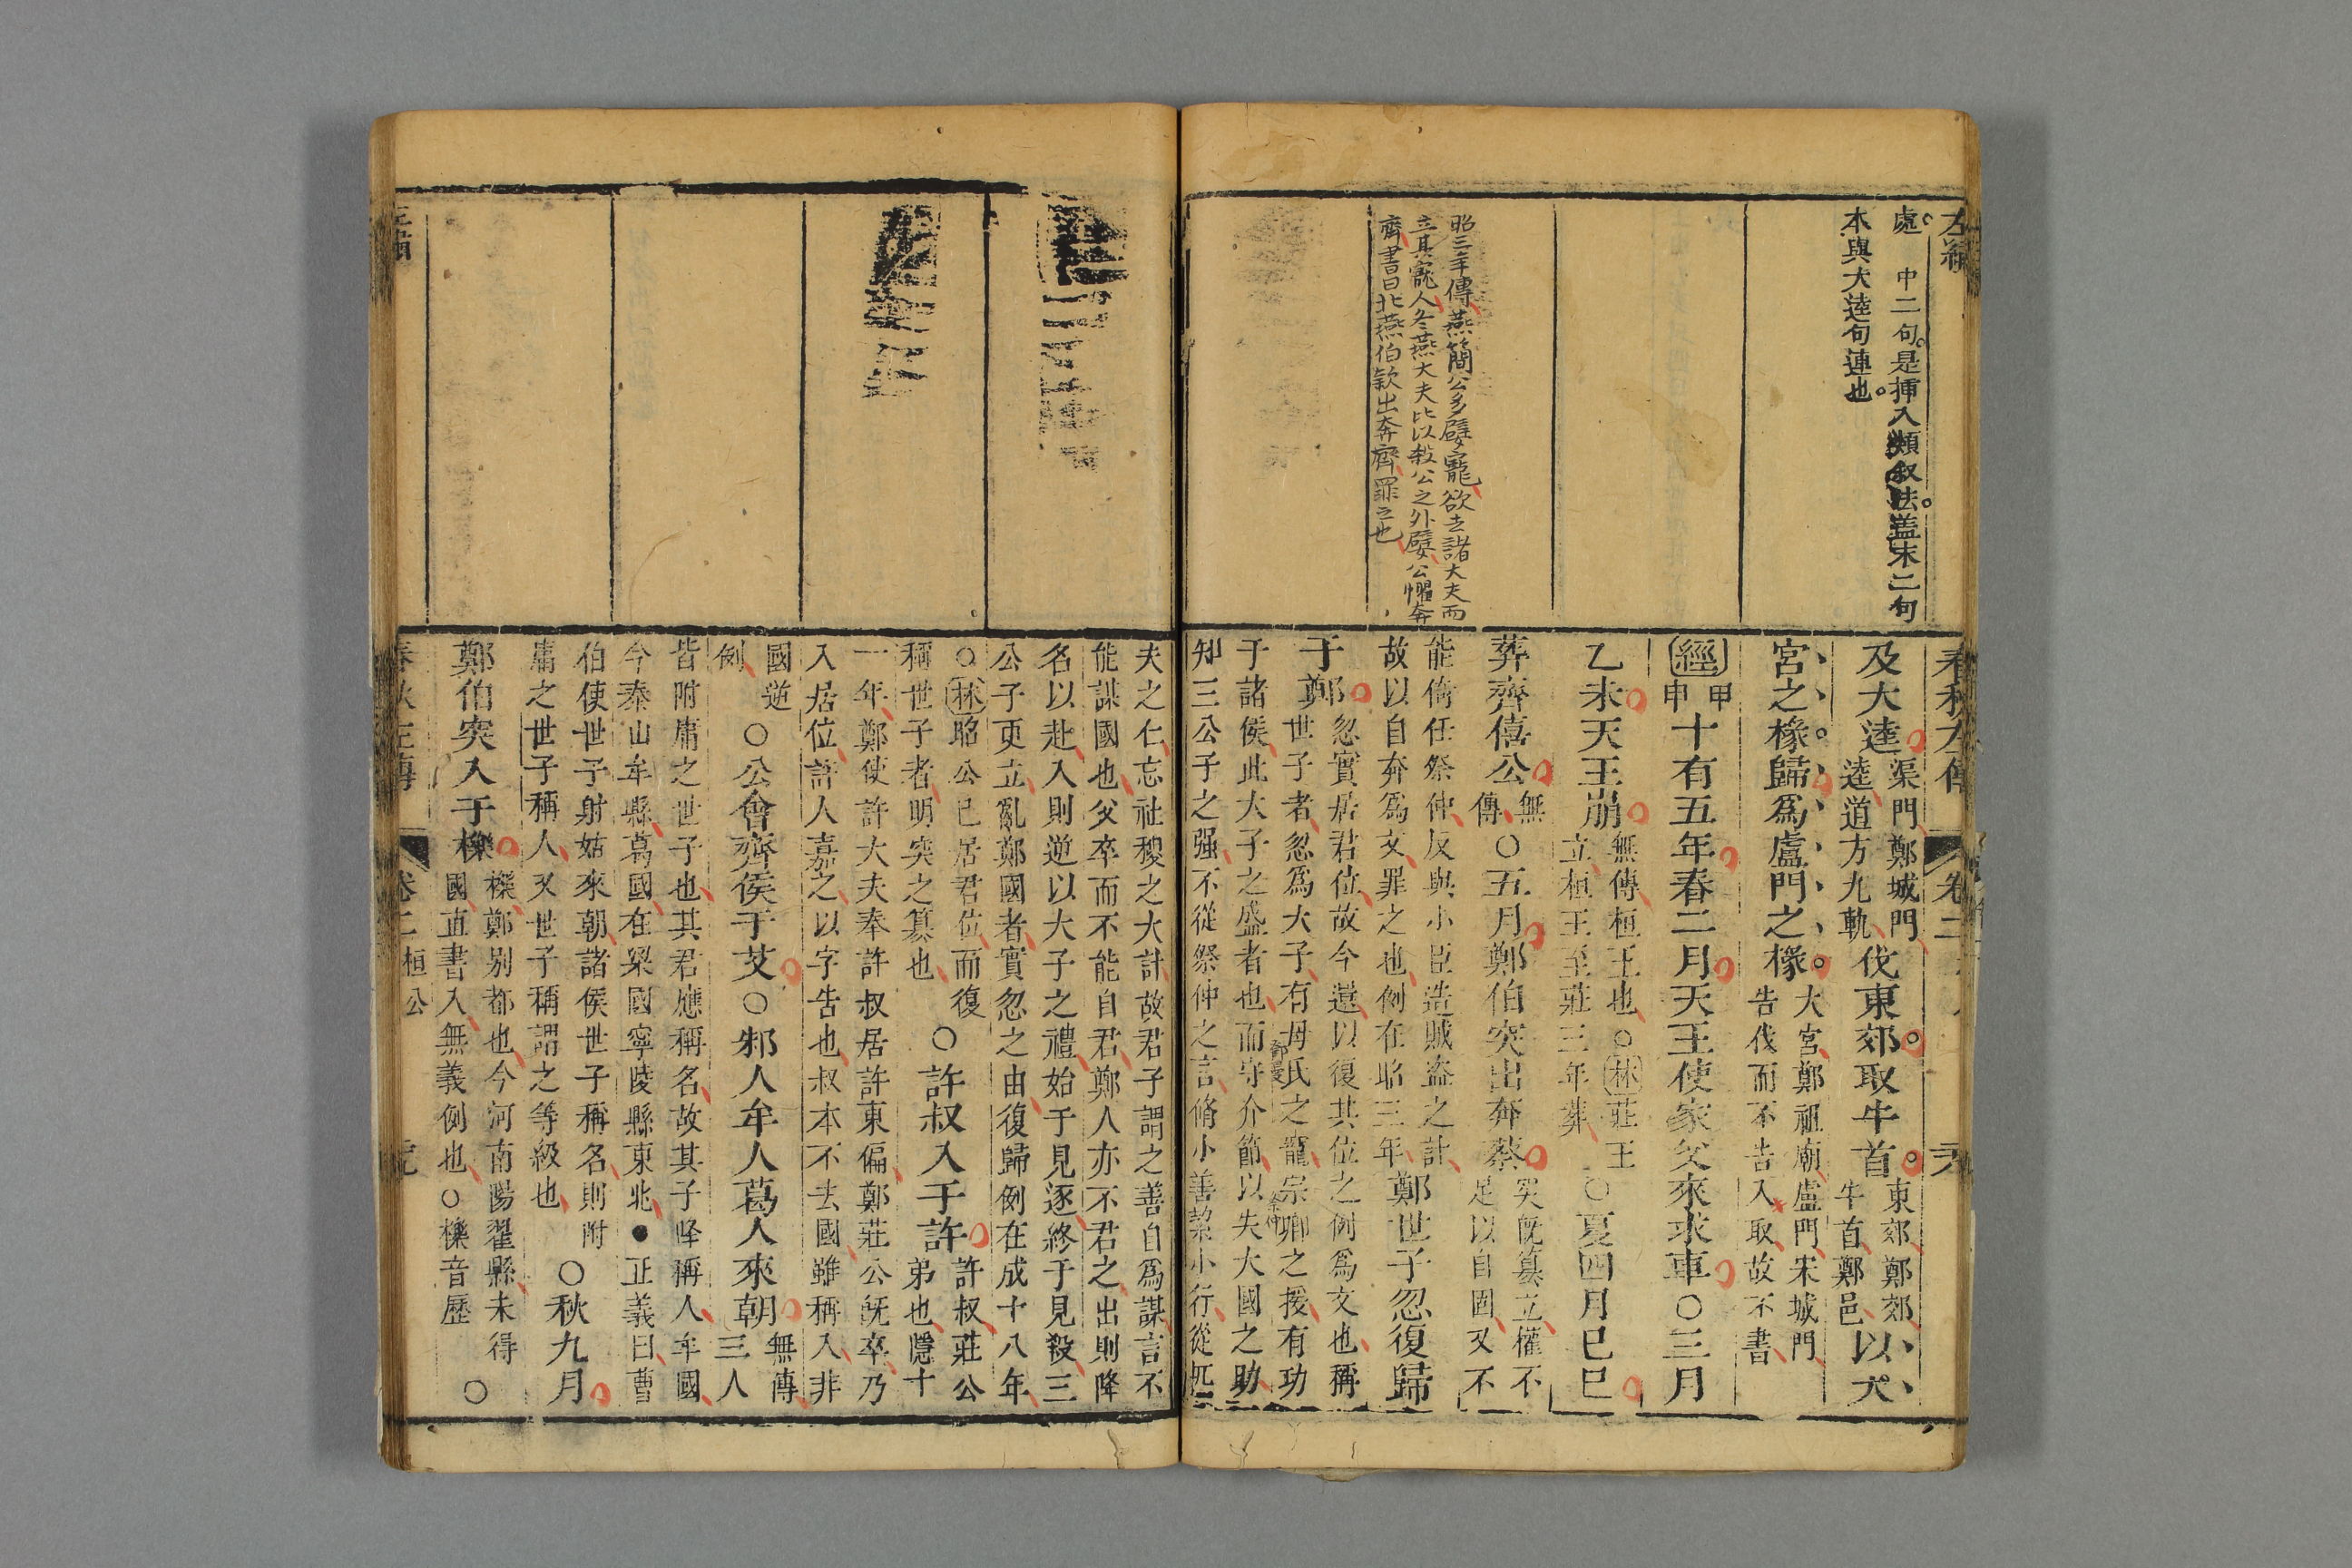 左繡
處。中二句。是揷入類敘法。盖末二句
本與大逵句連也。
昭三年傳燕簡公多嬖寵欲去諸大夫而
立其寵人冬燕大夫比以殺公之外嬖公懼奔
齊書曰北燕伯款出奔齊罪之也
春秋左傳 卷二
及大逵
渠門鄭城門
逵道方九軌
伐東郊。取牛首。
東郊鄭郊
牛首鄭邑
以大
宮之椽。歸爲盧門之椽。
大宮鄭祖廟盧門宋城門
告伐而不告入取故不書
經
甲
申
十有五年春二月天王使家父來求車○三月
乙未天王崩
無傳桓王也○林莊王
立桓王至莊三年葬
○夏四月己巳
葬齊僖公
無
傳
○五月鄭伯突出奔蔡
突旣篡立權不
足以自固又不
能倚任祭仲反與小臣造賊盜之計
故以自奔爲文罪之也例在昭三年
鄭世子忽復歸
于鄭
忽實居君位故今還以復其位之例爲文也稱
世子者忽爲大子有母氏之寵宗卿之援有功
于諸侯此大子之盛者也而守介節以失大國之助
知三公子之强不從祭仲之言脩小善絜小行從匹
夫之仁忘社稷之大計故君子謂之善自爲謀言不
能謀國也父卒而不能自君鄭人亦不君之出則降
名以赴入則逆以大子之禮始于見逐終于見殺三
公子更立亂鄭國者實忽之由復歸例在成十八年
○林昭公已居君位而復
稱世子者明突之篡也
○許叔入于許
許叔莊公
弟也隱十
一年鄭使許大夫奉許叔居許東偏鄭莊公旣卒乃
入居位許人嘉之以字告也叔本不去國雖稱入非
國逆
例
○公會齊侯于艾○邾人牟人葛人來朝
無傳
三人
皆附庸之世子也其君應稱名故其子降稱人牟國
今泰山牟縣葛國在梁國寧陵縣東北●正義曰曹
伯使世子射姑來朝諸侯世子稱名則附
庸之世子稱人又世子稱謂之等級也
○秋九月
鄭伯突入于櫟
櫟鄭别都也今河南陽翟縣未得
國直書入無義例也○櫟音歷
○
春秋左傳 卷二 桓公